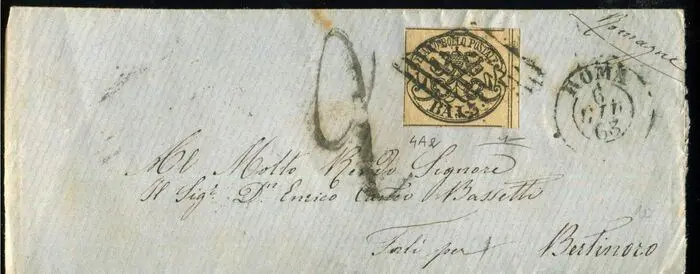 Romagne
FRANCO BOLLO POSTALE
BAI. 5
ROMA
6
63
2
4A2
Al Molto Rendo Signore
Il Sigr Dn Enrico Bassetti
Forlì per Bertinoro